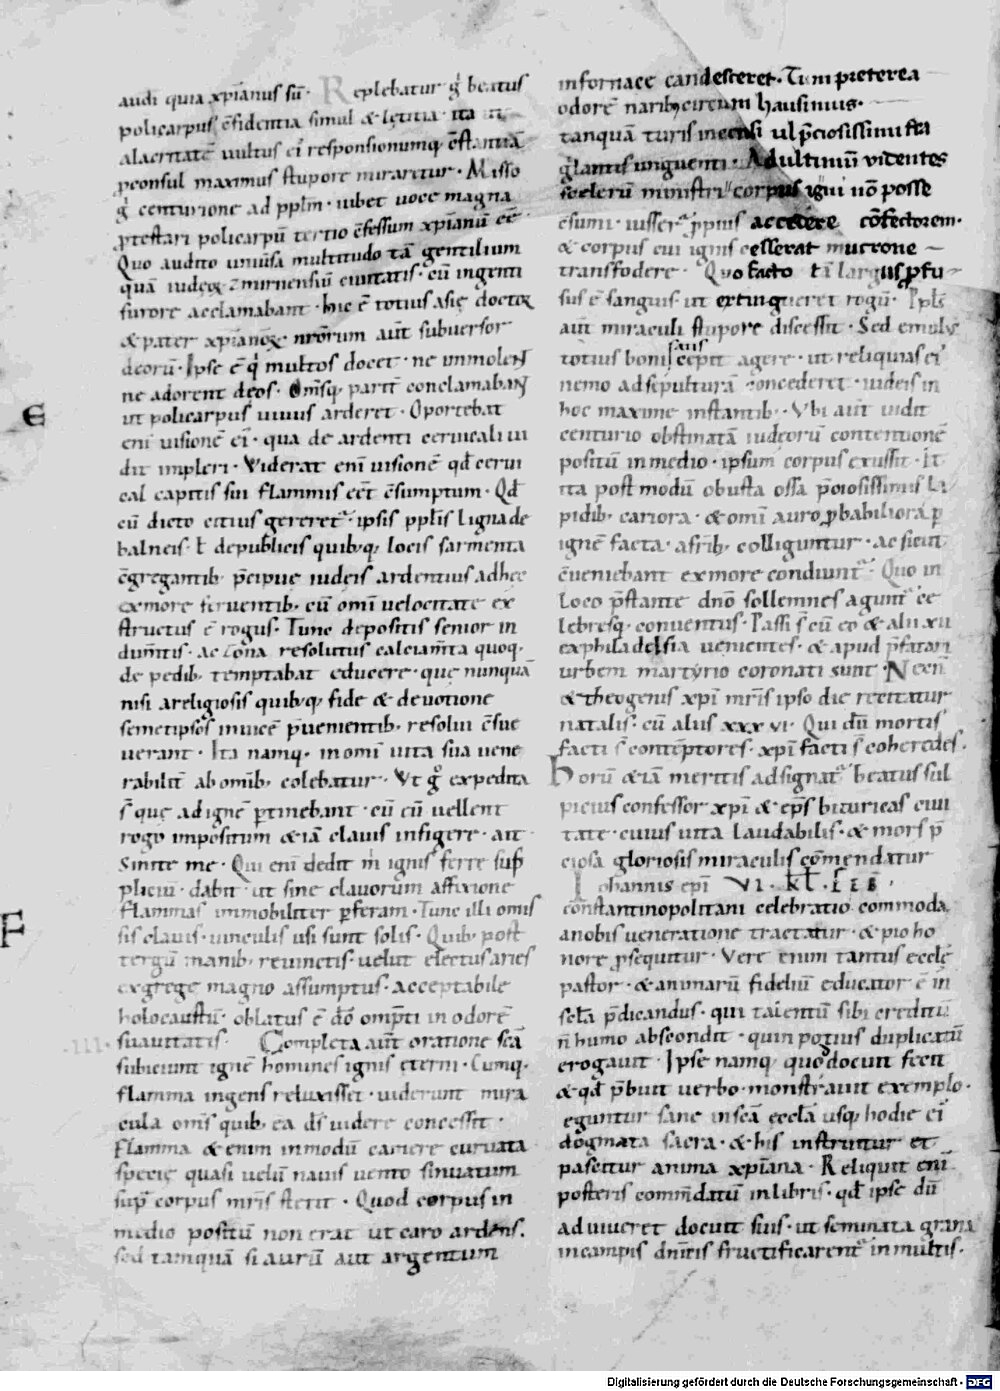 audi quia xp̅ianus su̅. Replebatur g̊ beatus
policarpus c̅fidentia simul & lętitia. ita ut
alacritate̅ uultus ei responsionumq; c̅stantia̅
pconsul maximus stupore miraretur. Misso
g̊ centurione ad ppl̅m. iubet uoce magna
p̱testari policarpu̅ tertio c̅fessum xp̅ianu̅ e̅e.
Quo audito uniu̅sa multitudo ta̅ gentilium
qua̅ iudeoꝝ zmirnensiu̅ ciuitatis. cu̅ ingenti
furore acclamabant. hic e̅ totius asię doctor
& pater xp̅ianoꝝ. nr̅orum aut̅ subuersor
deoru̅. Ipse e̅ qui multos docet. ne immolent
ne adorent deos. Om̅sq; parit̅ conclamabant
ut policarpus uiuus arderet. Oportebat
eni̅ uisione̅ ei. qua de ardenti ceruicali ui
dit impleri. Viderat eni̅ uisione̅ qd̅ cerui
cal capitis sui flammis e̅e̅t c̅sumptum. Qd̅
cu̅ dicto citius gereret̅. ipsis ppl̅is ligna de
balneis. ł de publicis quib;q; locis sarmenta
c̅gregantib; p̅cipue iudeis ardentius ad hęc
ex more feruentib; cu̅ omi̅ uelocitate ex
structus e̅ rogus. Tunc depositis senior in
dum̅tis. ac zona resolutus calciam̅ta quoq;
de pedib; temptabat educere. quę nunqua̅
nisi a religiosis quib;q; fide & deuotione
semetipsos inuice̅ p̅uenientib; resolui c̅sue
uerant. Ita namq; in omi̅ uita sua uene
rabilit̅ ab omib; colebatur. Vt g̊ expedita
s̅ quę ad igne̅ p̱tinebant. cu̅ eu̅ uellent
rogo impositum & ia̅ clauis infigere. ait
Sinite me. Qui eni̅ dedit m̅ ignis ferre sup̅
pliciu̅. dabit ut sine clauorum affixione
flammas immobiliter p̱feram. Tunc illi omis
sis clauis. uinculis usi sunt solis. Quib; post
tergu̅ manib; reuinctis. uelut electus aries
ex grege magno assumptus. acceptabile
holocaustu̅. oblatus e̅ do̅ omp̅ti in odore̅
suauitatis. Completa aut̅ oratione sc̅a
.III.
subiciunt igne̅ homines ignis ęterni. Cumq;
flamma ingens reluxisset. uiderunt mira
cula om̅s quib; ea d̅s uidere concessit.
Flamma & enim in modu̅ camere curuata
specię quasi uelu̅ nauis uento sinuatum
sup̅ corpus mr̅is stetit. Quod corpus in
medio positu̅ non erat ut caro ardens.
sed tamqua̅ si auru̅ aut argentum
E
F
in fornace candesceret. Tum pręterea
odore̅ narib; hausimus.
tanqua̅ turis incensi ul p̅ciosissimi fla
glantis unguenti. Ad ultimu̅ uidentes
sceleru̅ ministri corpus igni no̅ posse
c̅sumi. iusser̅ p̱pius accedere c̅fectorem.
& corpus cui ignis cesserat mucrone
transfodere. Quo facto ta̅ largus p̱fu
sus e̅ sanguis. ut extingueret rogu̅. Ppl̅s
aut̅ miraculi stupore discessit. Sed emulus
totius boni satis cepit agere. ut reliquias ei
nemo ad sepultura̅ concederet. iudeis in
hoc maxime instantib; Vbi aut̅ uidit
centurio obstinata̅ iudeoru̅ contentione̅
positu̅ in medio. ipsum corpus exussit. It
ita post modu̅ obusta ossa p̅ciosissimis la
pidib; cariora. & omi̅ auro p̱babiliora p̱
igne̅ facta. a fr̅ib; colliguntur. ac sicut
c̅ueniebant ex more condiunt̅. Quo in
loco p̅stante dn̅o sollemnes agunt̅ ce
lebresq; conuentus. Passi s̅ cu̅ eo & alii xii
ex philadelfia uenientes. & apud p̅fatam
urbem martyrio coronati sunt.
& theogenis xp̅i mr̅is ipso die recitatur
natalis. cu̅ aliis xxx vi. Qui du̅ mortis
facti s̅ conte̅ptores. xp̅i facti s̅ coheredes.
Horu̅ & ia̅ meritis adsignat̅ beatus sul
picius confessor xp̅i & ep̅s bituricas ciui
tate. cuius uita laudabilis. & mors p̅
ciosa gloriosis miraculis co̅mendatur
Iohannis epi̅ VI. KL. FEB.
co̅nstantinopolitani celebratio commoda
a nobis ueneratione tractatur. & pio ho
nore p̱sequitur. Vere enim tantus eccłę
pastor. & animaru̅ fideliu̅ educator e̅ in
scła p̅dicandus. qui talentu̅ sibi creditu̅
n̅ humo abscondit. quin potius duplicatu̅
erogauit. Ipse namq; quod docuit fecit
& qd̅ p̅buit uerbo. monstrauit exemplo.
Leguntur sane in sc̅a eccła usq; hodie ei
dogmata sacra. & his instruitur et
pascitur anima xp̅iana. Reliquit eni̅
posteris comm̅datu̅ in libris. qd̅ ipse du̅
aduiueret docuit suis. ut seminata grana
in campis dn̅icis fructificarent̅ in multis.